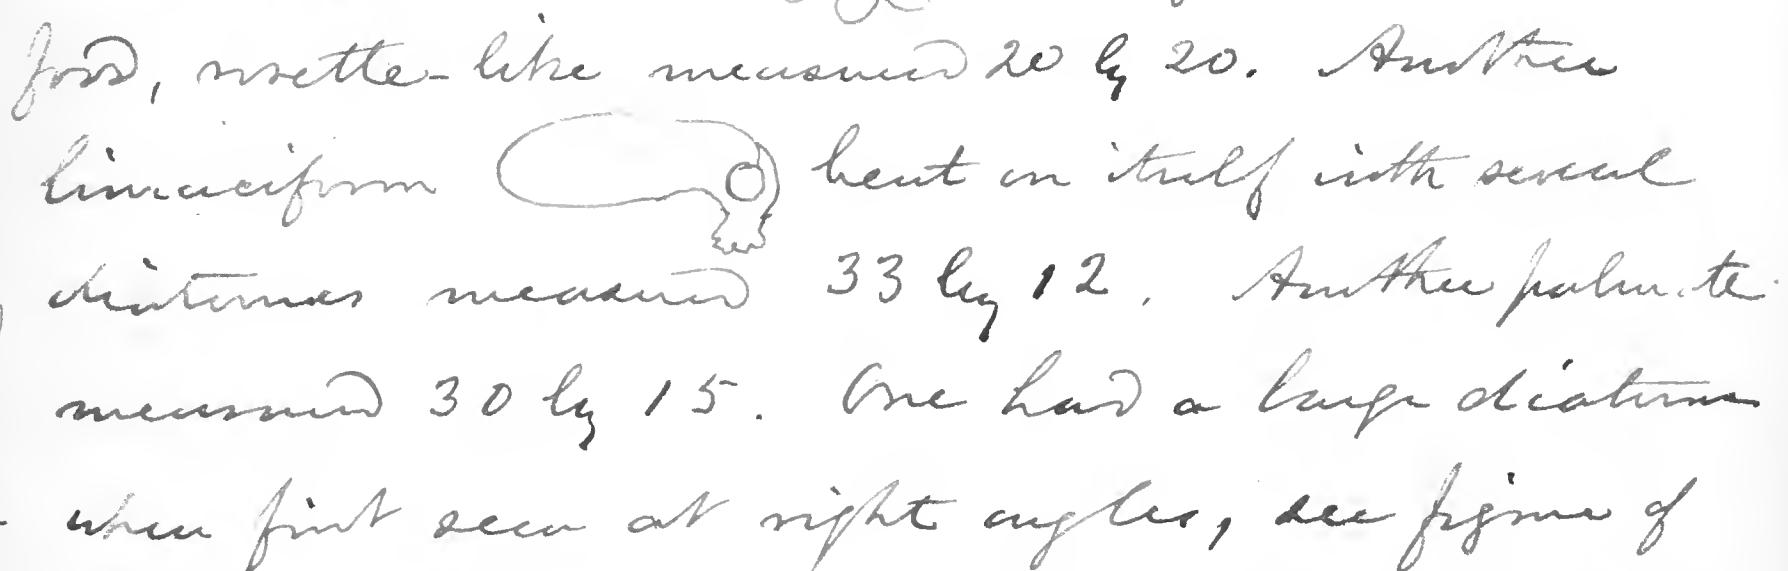 food, rosette-like measured 20 by 20. Another
limaciform bent on itself with several
diatomes measured 33 by 12. Another palmate
measured 30 by 15. One had a large diatome
when first seen at right angles, see figure of